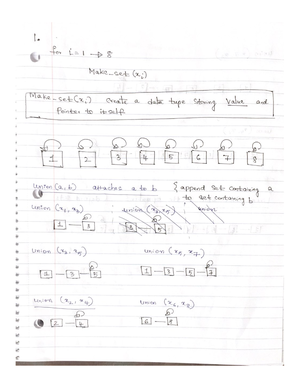 1.
for i=1 → 8
Make_set(xi)
Make_set(xi) Create a data type storing Value and
Pointer to itself.
1 2 3 4 5 6 7 8
Union(a,b) attaches a to b {append set containing a
to set containing b
Union (x1, x3)
1 3
Union (x3, x5) Union (x5, x7)
1 3 5 1 3 5 7
Union (x2, x4) Union (x6, x8)
2 4 6 8